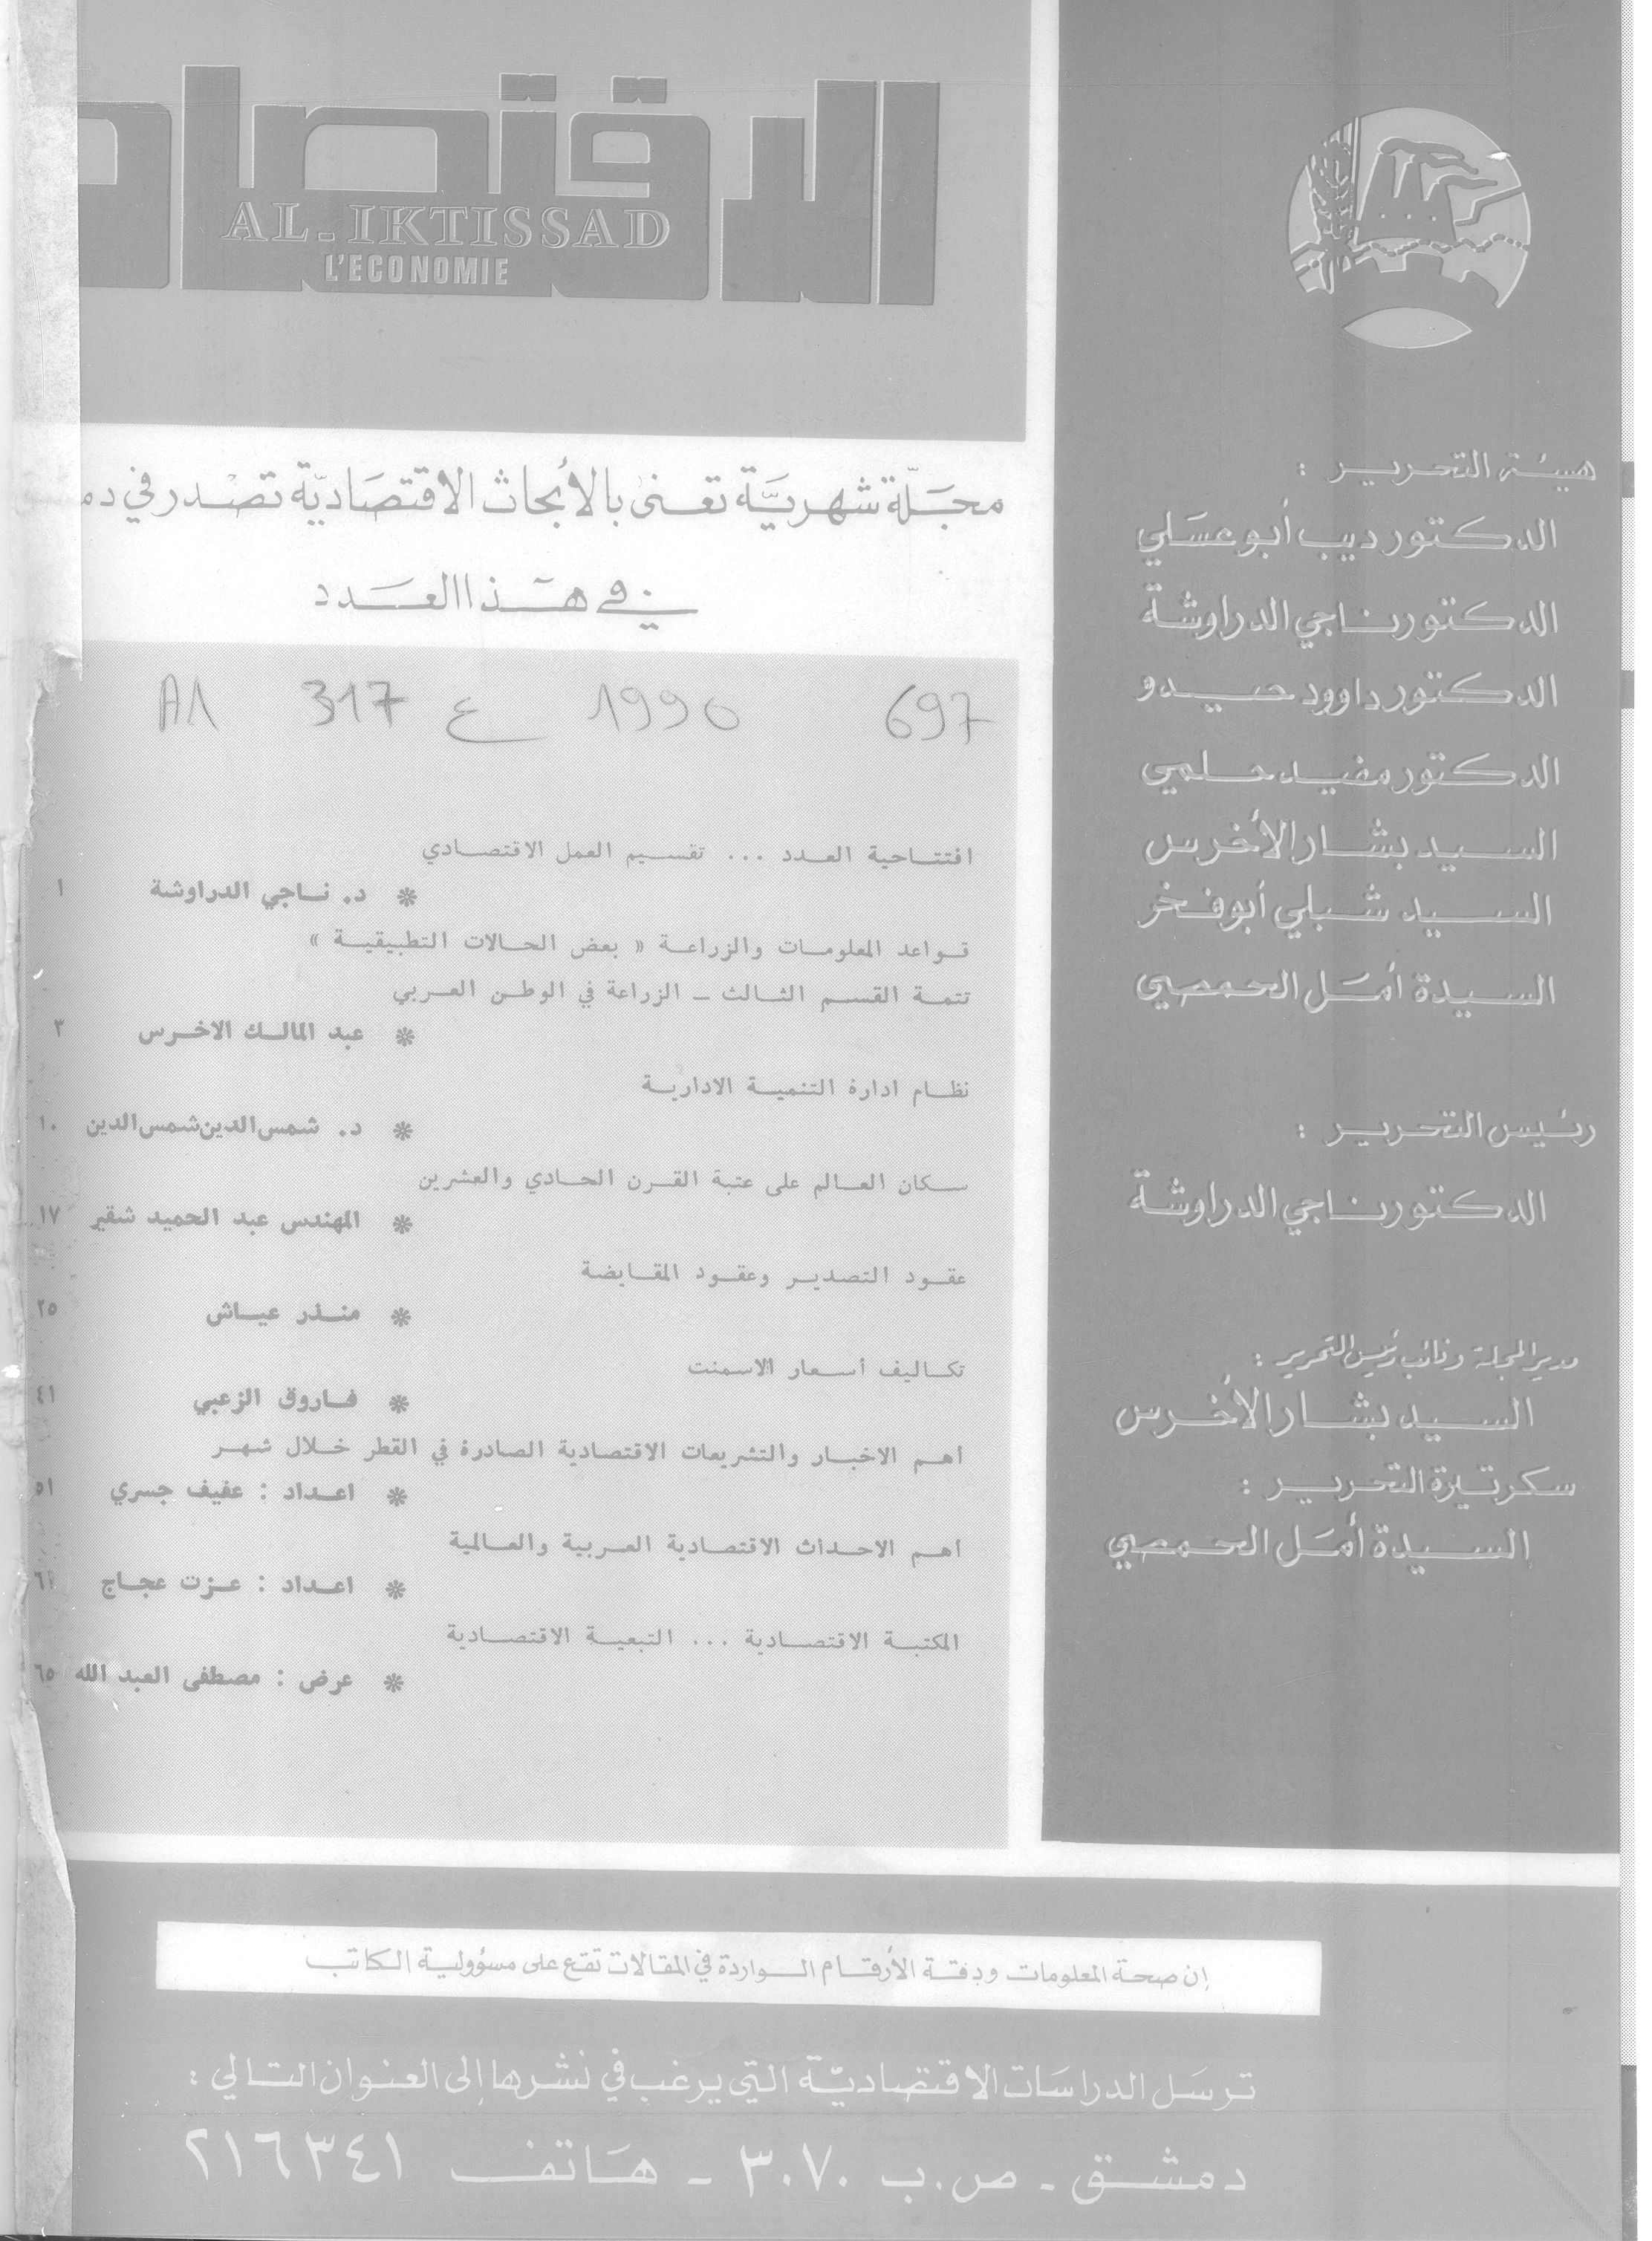 الاقتصاد
AL-IKTISSAD
L'ECONOMIE
مجلة شهرية تعنى بالأبحاث الاقتصادية تصدر في
في هذا العدد
A1 317 ع 1990 697
افتتاحية العدد ... تقسيم العمل الاقتصادي
* د. ناجي الدراوشة ١
قواعد المعلومات والزراعة « بعض الحالات التطبيقية »
تتمة القسم الثالث ـ الزراعة في الوطن العربي
* عبد المالك الاخرس ٣
نظام ادارة التنمية الادارية
* د. شمس الدين شمس الدين ١٠
سكان العالم على عتبة القرن الحادي والعشرين
* المهندس عبد الحميد شقير ١٧
عقود التصدير وعقود المقايضة
* منذر عياش ٢٥
تكاليف أسعار الاسمنت
* فاروق الزعبي ٤١
أهم الاخبار والتشريعات الاقتصادية الصادرة في القطر خلال شهر
* اعداد : عفيف جسري ٥١
أهم الاحداث الاقتصادية العربية والعالمية
* اعداد : عزت عجاج ٦١
المكتبة الاقتصادية ... التبعية الاقتصادية
* عرض : مصطفى العبد الله ٦٥
هيئة التحرير :
الدكتور ديب أبو عسلي
الدكتور ناجي الدراوشة
الدكتور داوود حيدو
الدكتور مفيد حلمي
السيد بشار الأخرس
السيد شبلي أبو فخر
السيدة أمل الحمصي
رئيس التحرير :
الدكتور ناجي الدراوشة
مدير المجلة ونائب رئيس التحرير :
السيد بشار الأخرس
سكرتيرة التحرير :
السيدة أمل الحمصي
إن صحة المعلومات ودقة الأرقام الواردة في المقالات تقع على مسؤولية الكاتب
ترسل الدراسات الاقتصادية التي يرغب في نشرها إلى العنوان التالي :
دمشق - ص.ب ٣٠٧٠ - هاتف ٢١٦٣٤١